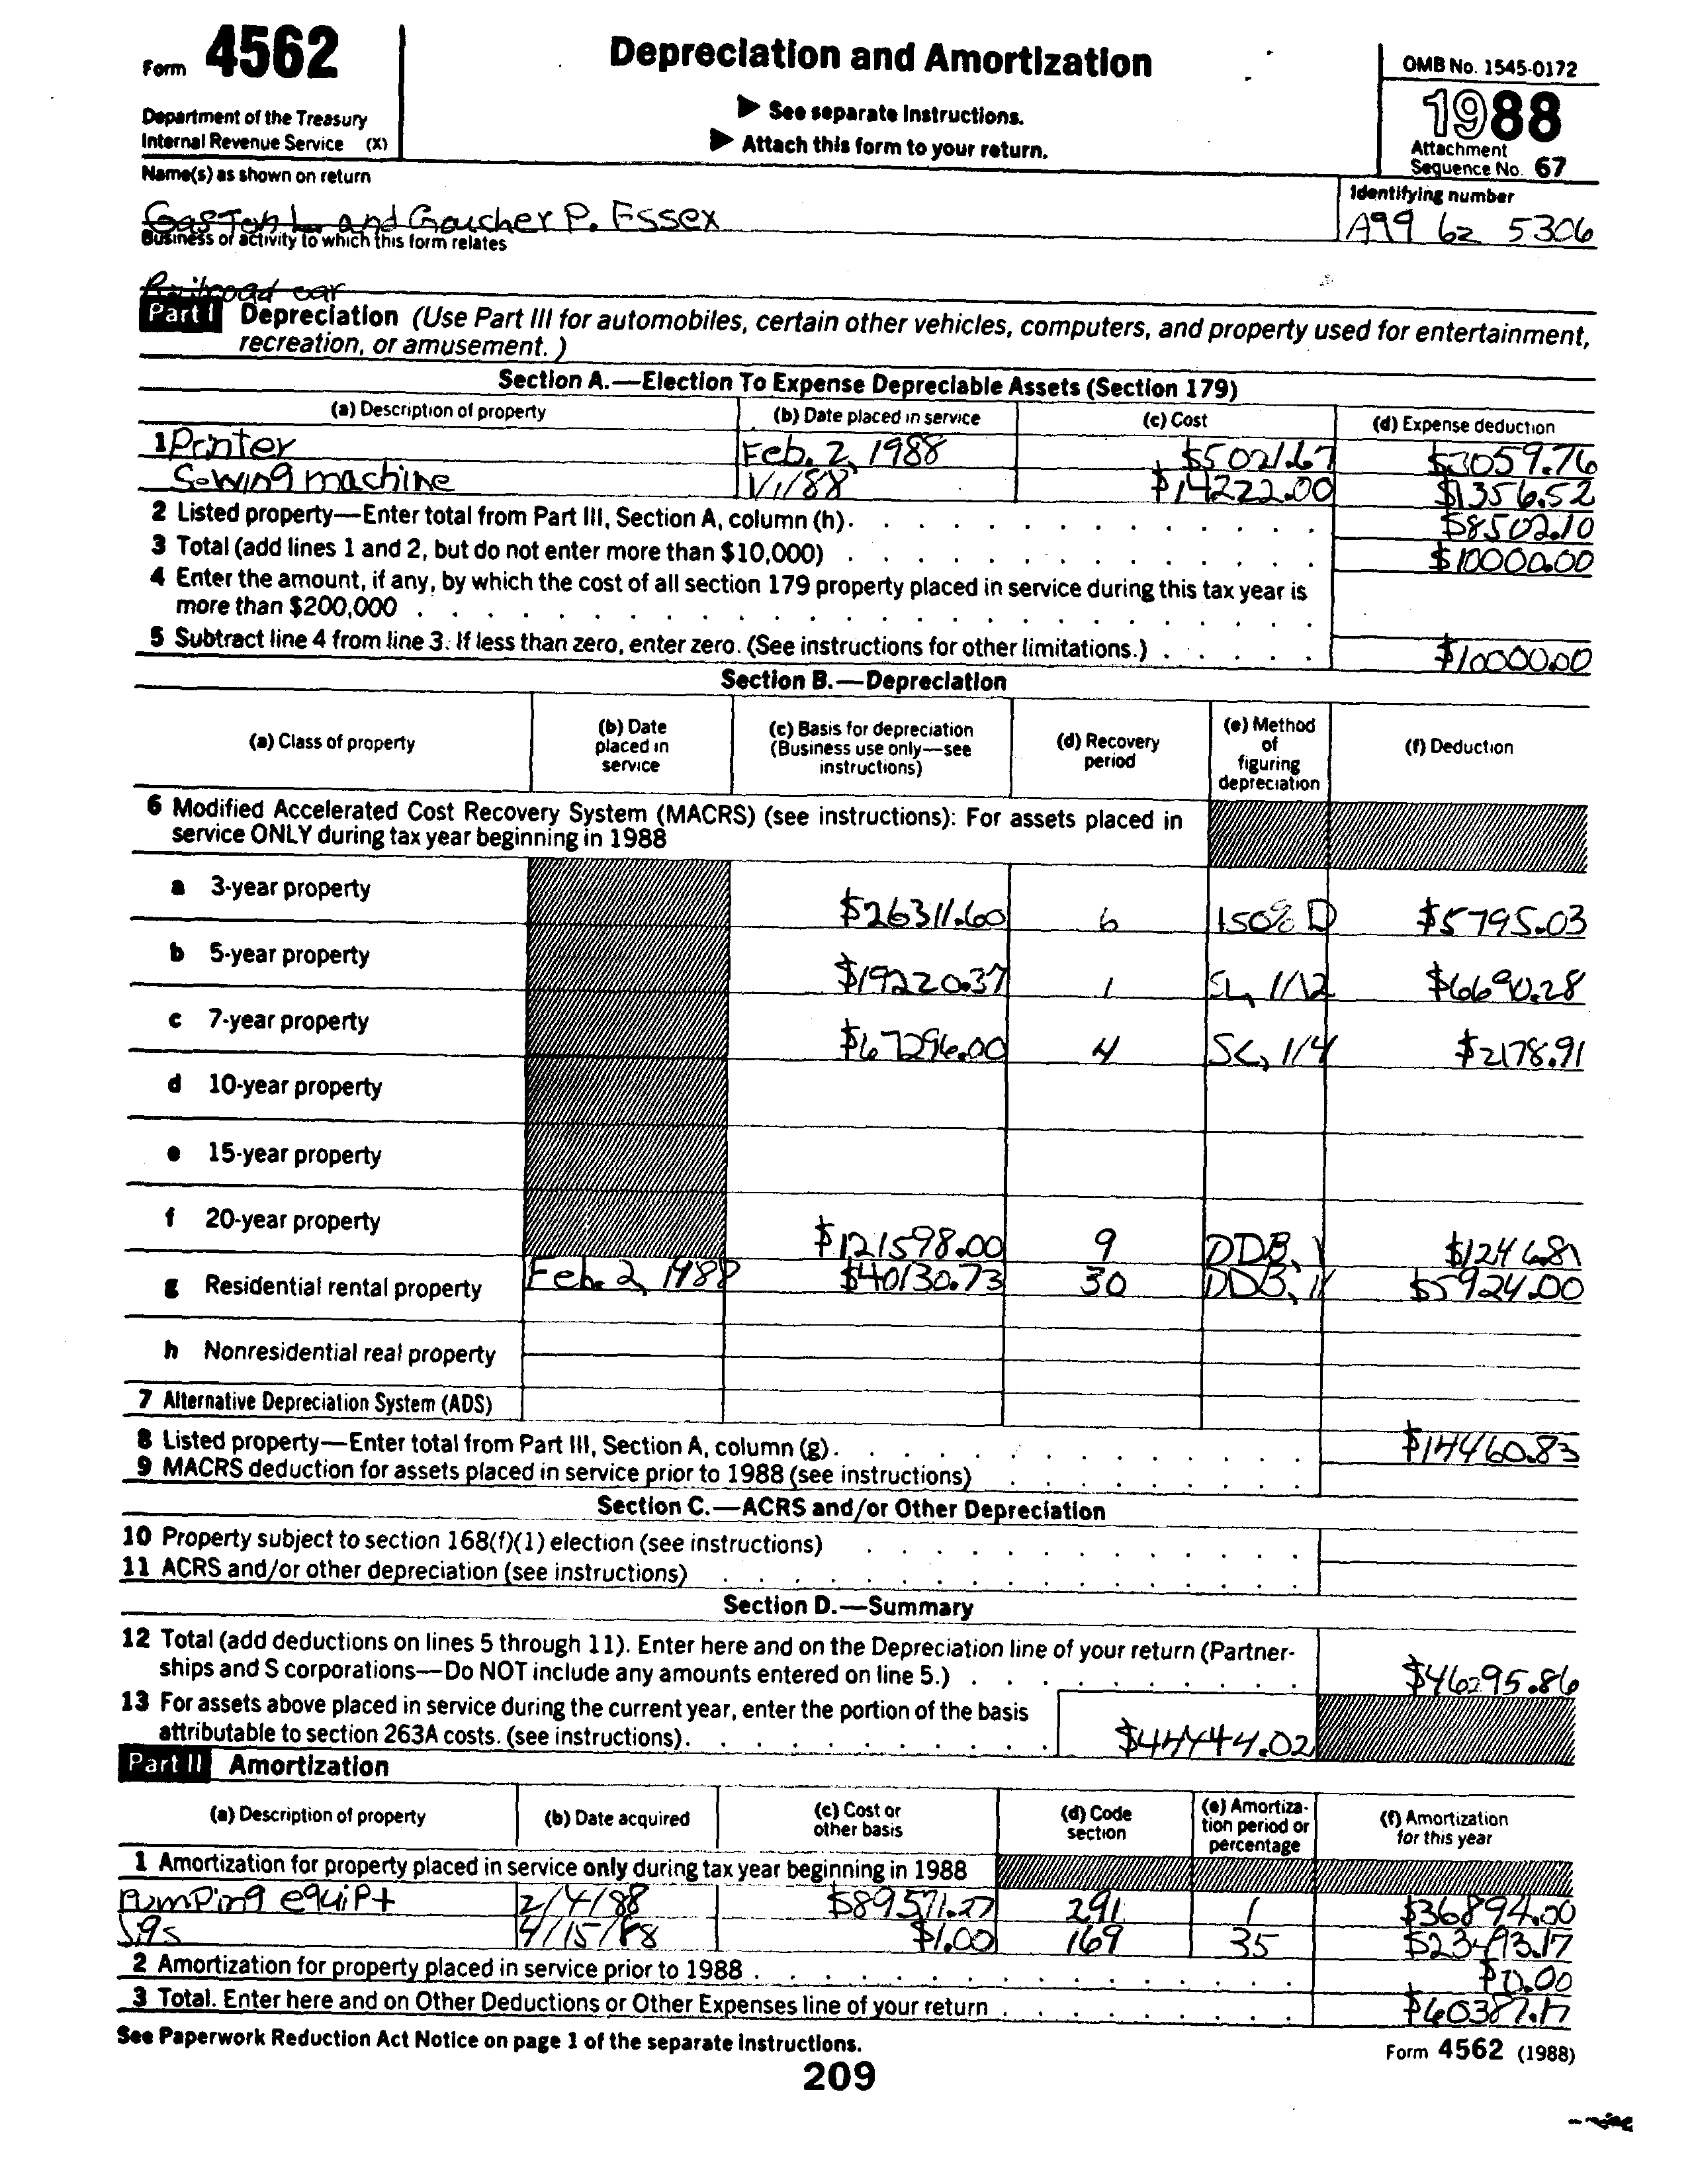 Form 4562
Depreciation and Amortization
OMB No. 1545-0172
1988
Department of the Treasury
Internal Revenue Service (X)
▶ See separate instructions.
▶ Attach this form to your return.
Attachment
Sequence No. 67
Name(s) as shown on return
Identifying number
Gaston L. and Goucher P. Essex
A99 62 5306
Business or activity to which this form relates
Railroad car
Part I Depreciation (Use Part III for automobiles, certain other vehicles, computers, and property used for entertainment,
recreation, or amusement.)
Section A.—Election To Expense Depreciable Assets (Section 179)
(a) Description of property (b) Date placed in service (c) Cost (d) Expense deduction
1 Printer Feb. 2, 1988 $5021.67 $3059.76
Sewing machine 1/1/88 $14222.00 $1356.52
2 Listed property—Enter total from Part III, Section A, column (h). $8502.10
3 Total (add lines 1 and 2, but do not enter more than $10,000) $10000.00
4 Enter the amount, if any, by which the cost of all section 179 property placed in service during this tax year is
more than $200,000
5 Subtract line 4 from line 3. If less than zero, enter zero. (See instructions for other limitations.) $10000.00
Section B.—Depreciation
(a) Class of property (b) Date placed in service (c) Basis for depreciation (Business use only—see instructions) (d) Recovery period (e) Method of figuring depreciation (f) Deduction
6 Modified Accelerated Cost Recovery System (MACRS) (see instructions): For assets placed in
service ONLY during tax year beginning in 1988
a 3-year property $26311.60 6 150% D $5795.03
b 5-year property $19220.37 1 SL, 1/12 $6690.28
c 7-year property $67296.00 4 SL, 1/4 $2178.91
d 10-year property
e 15-year property
f 20-year property $121598.00 9 DDB, 1 $1246.81
g Residential rental property Feb. 2, 1988 $40130.73 30 DDB, 1/ $5924.00
h Nonresidential real property
7 Alternative Depreciation System (ADS)
8 Listed property—Enter total from Part III, Section A, column (g). $14460.83
9 MACRS deduction for assets placed in service prior to 1988 (see instructions)
Section C.—ACRS and/or Other Depreciation
10 Property subject to section 168(f)(1) election (see instructions)
11 ACRS and/or other depreciation (see instructions)
Section D.—Summary
12 Total (add deductions on lines 5 through 11). Enter here and on the Depreciation line of your return (Partner-
ships and S corporations—Do NOT include any amounts entered on line 5.) $46295.86
13 For assets above placed in service during the current year, enter the portion of the basis
attributable to section 263A costs. (see instructions). $44444.02
Part II Amortization
(a) Description of property (b) Date acquired (c) Cost or other basis (d) Code section (e) Amortiza-tion period or percentage (f) Amortization for this year
1 Amortization for property placed in service only during tax year beginning in 1988
Pumping equipt 2/4/88 $89571.27 291 1 $36894.00
4/15/88 $1.00 169 35 $23493.17
2 Amortization for property placed in service prior to 1988 $0.00
3 Total. Enter here and on Other Deductions or Other Expenses line of your return $60387.17
See Paperwork Reduction Act Notice on page 1 of the separate instructions.
Form 4562 (1988)
209